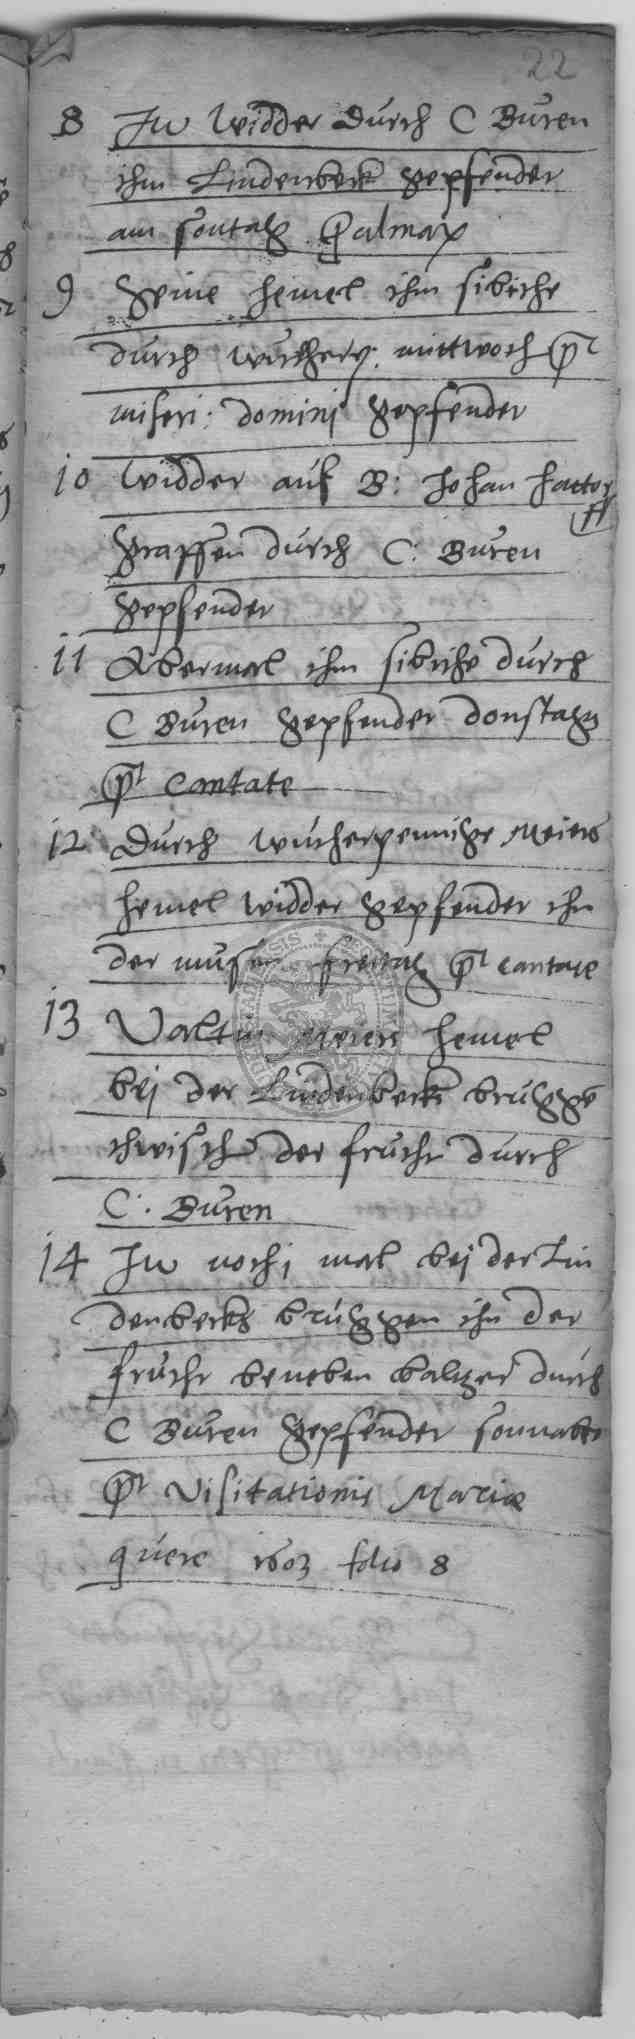 22
8 Jw widder durch C Buren
ihm Lindenberk gepfender
am sontag Palmar
9 Seine hemel ihm sibiche
durch wucherp: mittwoch pt
miseri: domini gepfender
10 Widder auf B: Johan hattor
ff
graffen durch C: Buren
gepfender
11 Abermal ihm sibiche durch
C Buren gepfender donstagh
pt Cantate
12 Durch wucherpennige Meiers
hemel widder gepfender ihn
der freitag pt Cantate
13 Valtin Meiers hemel
bei der Lindenberks brugge
chwisch der frucht durch
C: Buren
14 Jw noch i mal bei der Lin
denberks bruggen ihn der
frucht beneben baltzer durch
C Buren gepfender sonnabe
pt Visitationis Mariae
quere 1603 folio 8